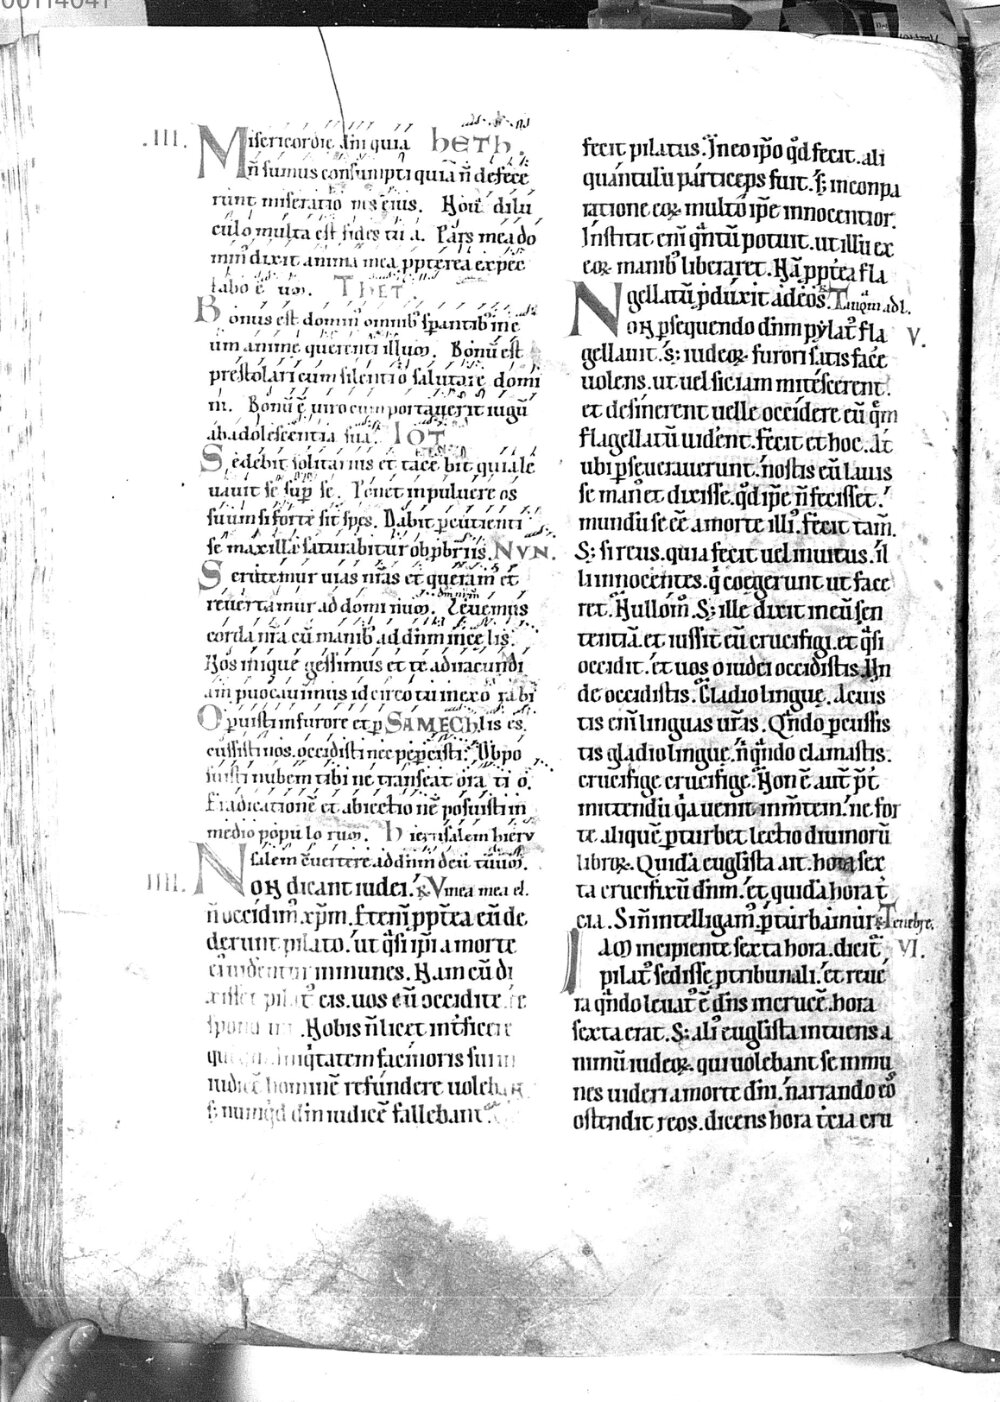 00114041
.III. Misericordie dñi quia heth.
ñ sumus consumpti quia ñ defece
runt miseratio nis eius. Noui dilu
culo multa est fides tu a. Pars mea do
min' dixit anima mea ppterea expec
tabo eum. Thet
Bonus est domin' omnib' spantib' in e
um anime querenti illum. Bonū est
prestolari cum silenti o salutare domi
ni. Bonū ē uiro cum portauerit iugū
ab adolescentia sua. IOT
Sedebit solitari us et tace bit quia le
uauit se sup se. Ponet in puluere os
suum si forte sit spes. Dabit pcutienti
se maxillā saturabitur obpbriis. NVN.
Scrutemur uias nr̄as et queram' et
reuertamur ad domi num. Leuemus
corda nr̄a cū manib' ad dn̄m in ce lis.
Nos inique gessimus et te ad iracundi
am puocauimus idcirco tu inexo rabi
Operuisti in furore et p SAMECH lis es.
cussisti nos. occidisti nec pepercisti. Oppo
suisti nubem tibi ne transeat ora ti o.
Eradicationē et abiectio nē posuisti in
medio popu lo rum. hierusalem hieru
salem cuertere ad dn̄m deū tuum.
IIII. Non dicant iudei. Vinea mea el.
ñ occidim' xp̄m. Etenī ppt̄ea eū de
derunt pilato. ut q̄si ip̄i a morte
ei' uiderentur immunes. Nam cū di
xisset pilat' eis. uos eū occidite. re
sponderunt. Nobis ñ licet int̄ficere
quemquam. Iniq̄tatem facinoris sui in
iudicē hominē refundere uolebant.
s; numq̄d dm̄ iudicē fallebant.
fecit pilatus. In eo ip̄o qd̄ fecit. ali
quantulū particeps fuit. S; in conpa
ratione eoꝝ multo ip̄e innocentior.
Institit enī q̄ntū potuit. ut illū ex
eoꝝ manib' liberaret. Nā ppt̄ea fla
gellatū pduxit ad eos. Tanq̄m ad l.
Non psequendo dn̄m pylat' fla V.
gellauit. s; iudeoꝝ furori satisfac̄e
uolens. ut uel sic iam mitescerent.
et desinerent uelle occidere eū q̄m
flagellatū uider̄ent. fecit et hoc. At
ubi pseuerauerunt. nostis eū lauis
se man' et dixisse. qd̄ ip̄e ñ fecisset.
mundū se ēe a morte illi'. fecit tam̄.
S; si reus. quia fecit uel inuitus. il
li innocentes. q̄ coegerunt ut face
ret. Nullom̄. S; ille dixit in eū sen
tentiā. et iussit eū crucifigi. et q̄si
occidit. et uos o iudei occidistis. Un
de occidistis. Gladio lingue. Acuis
tis enī linguas ur̄as. Q̄ndo pcussis
tis gladio lingue. ñ q̄ndo clamastis.
crucifige crucifige. Non ē aut̄ p̄t
mittendū qa uenit in m̄tem. ne for
te aliquē pturbet lectio diuinorū
libroꝝ. Quidā eūglista ait. hora sex
ta crucifixū dn̄m. et quidā hora t̄
cia. Si ñ intelligam' pturbamur. Tenebre.
Iam incipiente sexta hora. dicit̄ VI.
pilat' sedisse p tribunali. et reue
ra q̄ndo leuat' ē dn̄s in crucē. hora
sexta erat. S; ali' euglista intuens a
nimū iudeoꝝ. qui uolebant se immu
nes uideri a morte dn̄i. narrando eos
ostendit reos. dicens hora t̄cia cru